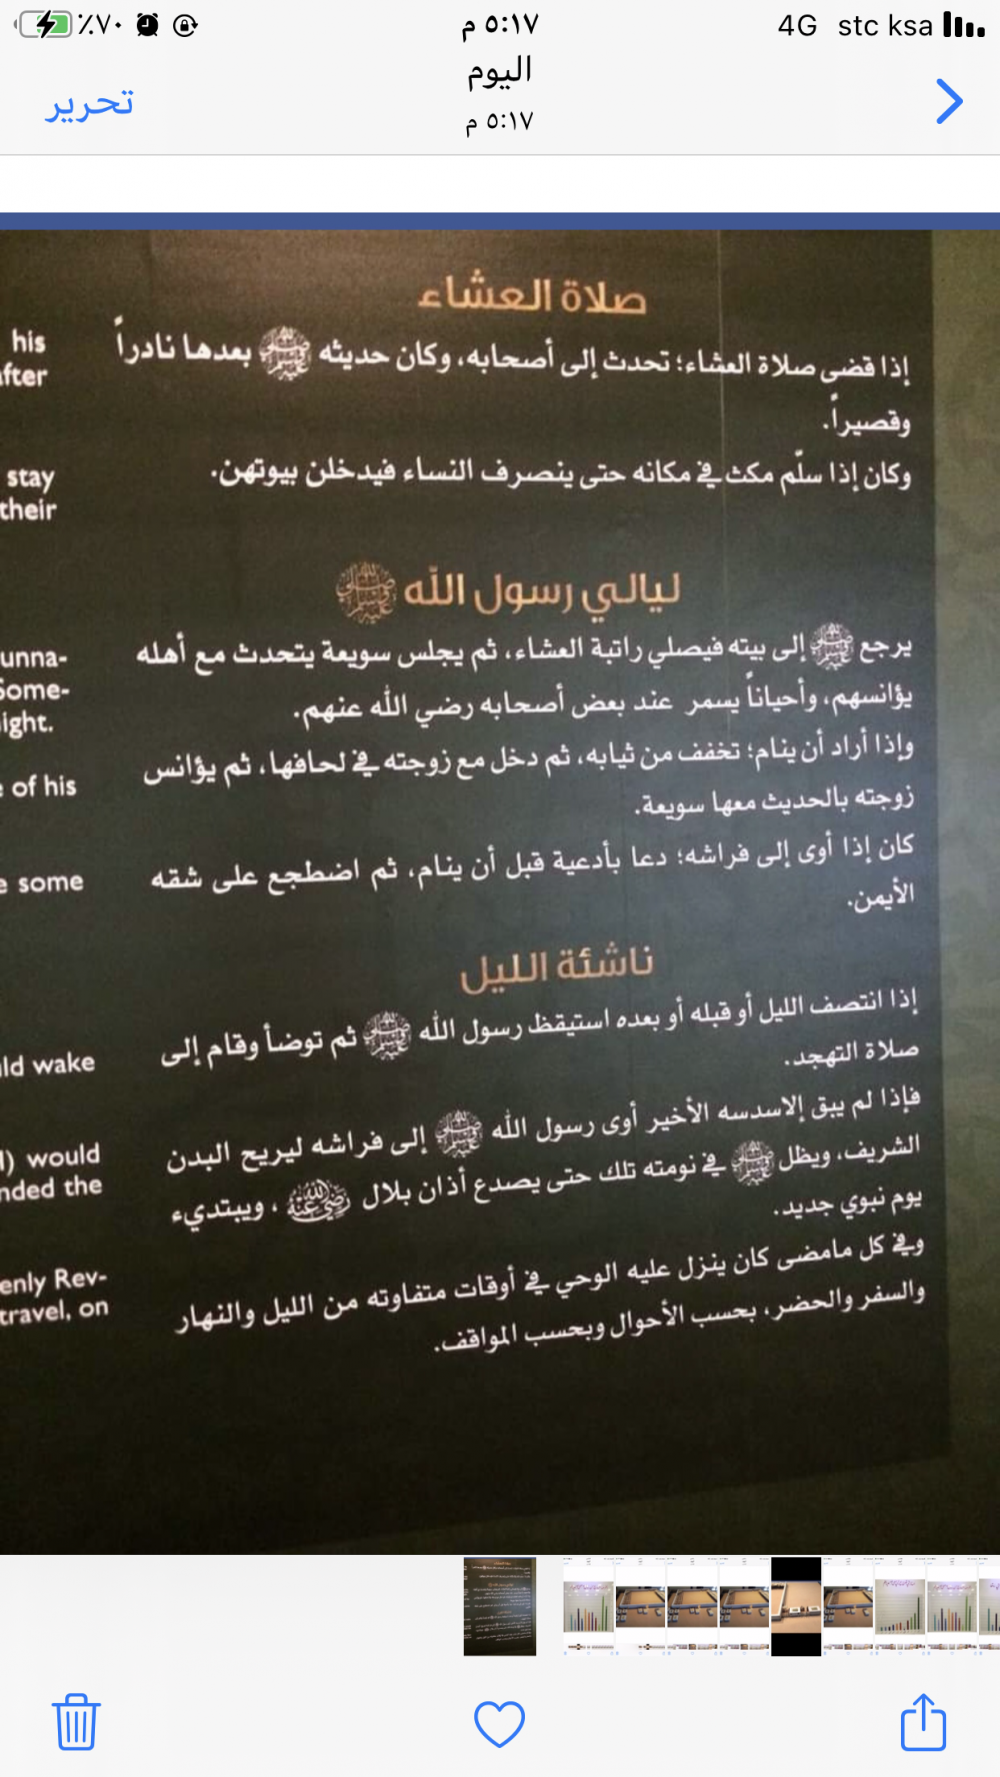 ٥:١٧ م
٪٧٠
4G stc ksa
اليوم
٥:١٧ م
تحرير
صلاة العشاء
إذا قضى صلاة العشاء؛ تحدث إلى أصحابه، وكان حديثه ﷺ بعدها نادراً
وقصيراً.
وكان إذا سلّم مكث في مكانه حتى ينصرف النساء فيدخلن بيوتهن.
ليالي رسول الله ﷺ
يرجع ﷺ إلى بيته فيصلي راتبة العشاء، ثم يجلس سويعة يتحدث مع أهله
يؤانسهم، وأحياناً يسمر عند بعض أصحابه رضي الله عنهم.
وإذا أراد أن ينام؛ تخفف من ثيابه، ثم دخل مع زوجته في لحافها، ثم يؤانس
زوجته بالحديث معها سويعة.
كان إذا أوى إلى فراشه؛ دعا بأدعية قبل أن ينام، ثم اضطجع على شقه
الأيمن.
ناشئة الليل
إذا انتصف الليل أو قبله أو بعده استيقظ رسول الله ﷺ ثم توضأ وقام إلى
صلاة التهجد.
فإذا لم يبق إلاسدسه الأخير أوى رسول الله ﷺ إلى فراشه ليريح البدن
الشريف، ويظل ﷺ في نومته تلك حتى يصدع أذان بلال رضي الله عنه، ويبتديء
يوم نبوي جديد.
وفي كل مامضى كان ينزل عليه الوحي في أوقات متفاوته من الليل والنهار
والسفر والحضر، بحسب الأحوال وبحسب المواقف.
his
after
stay
their
unna-
Some-
ight.
of his
some
ld wake
l) would
nded the
enly Rev-
travel, on